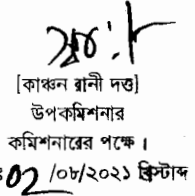 [কাঞ্চন রানী দত্ত]
উপকমিশনার
কমিশনারের পক্ষে।
02/০৮/২০২১ খ্রিস্টাব্দ